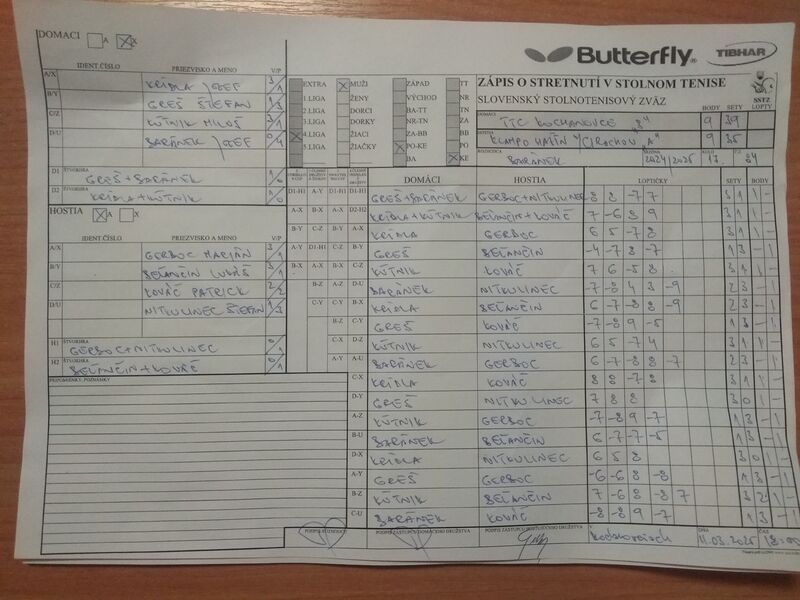 DOMACI A X
Butterfly TIBHAR
IDENT.ČÍSLO PRIEZVISKO A MENO V/P
A/X KRIDLA JOZEF 3/1
B/Y GREŠ ŠTEFAN 1/3
C/Z KÚTNIK MILOŠ 3/1
D/U BARÁNEK JOZEF 0/4
D1 ŠTVORHRA GREŠ+BARÁNEK 1/0
D2 ŠTVORHRA KRIDLA+KÚTNIK 1/0
EXTRA MUŽI ZÁPAD TT
1.LIGA ŽENY VÝCHOD NR
2.LIGA DORCI BA-TT TN
3.LIGA DORKY NR-TN ZA
4.LIGA ŽIACI ZA-BB BB
5.LIGA ŽIAČKY PO-KE PO
BA KE
ZÁPIS O STRETNUTÍ V STOLNOM TENISE
SLOVENSKÝ STOLNOTENISOVÝ ZVÄZ
SSTZ
BODY SETY LOPTY
DOMÁCI TTC KOCHANOVCE "B" 9 39
HOSTIA 9 35
ROZHODCA BARÁNEK SEZÓNA 2024/2025 KOLO 17.
HOSTIA A X
IDENT.ČÍSLO PRIEZVISKO A MENO V/P
A/X GERBOC MARIÁN 3/1
B/Y BEŤANČIN LUKÁŠ 3/1
C/Z KOVÁČ PATRICK 2/2
D/U NITKULINEC ŠTEFAN 1/3
H1 ŠTVORHRA GERBOC+NITKULINEC 0/1
H2 ŠTVORHRA BEŤANČIN+KOVÁČ 0/1
PRIPOMIENKY, POZNÁMKY
DOMÁCI HOSTIA LOPTIČKY SETY BODY
D1-H1 A-Y D1-H1 GREŠ+BARÁNEK GERBOC+NITKULINEC 8 8 -7 7 3 1 1 -
A-X B-X A-X D2-H2 KRIDLA+KÚTNIK BEŤANČIN+KOVÁČ 7 -6 8 9 3 1 1 -
B-Y C-Z B-Y A-X KRIDLA GERBOC 6 5 -7 8 3 1 1 -
A-Y D1-H1 C-Z B-Y GREŠ BEŤANČIN -4 7 -8 -7 1 3 - 1
B-X A-X B-X C-Z KÚTNIK KOVÁČ 7 6 -5 8 3 1 1 -
B-Z A-Z D-U BARÁNEK NITKULINEC -7 -8 4 3 -9 2 3 - 1
C-Y C-Y A-Y KRIDLA BEŤANČIN 6 -7 -8 8 -9 2 3 - 1
B-Z B-Z GREŠ KOVÁČ -7 -8 9 -5 1 3 - 1
C-X D-Z KÚTNIK NITKULINEC 6 5 -7 4 3 1 1 -
A-Y A-U BARÁNEK GERBOC 6 -7 -8 8 -7 2 3 - 1
C-X KRIDLA KOVÁČ 8 8 -7 8 3 1 1 -
D-Y GREŠ NITKULINEC 7 8 8 3 0 1 -
A-Z KÚTNIK GERBOC -7 -8 9 -7 1 3 - 1
B-U BARÁNEK BEŤANČIN 6 -7 -7 -5 1 3 - 1
D-X KRIDLA NITKULINEC 6 5 8 3 0 1 -
A-Y GREŠ GERBOC -6 -6 8 -8 1 3 - 1
B-Z KÚTNIK BEŤANČIN 7 -6 8 -8 7 3 2 1 -
C-U BARÁNEK KOVÁČ -8 -8 9 -7 1 3 - 1
PODPIS ROZHODCU PODPIS ZÁSTUPCU DOMÁCEHO DRUŽSTVA PODPIS ZÁSTUPCU HOSŤUJÚCEHO DRUŽSTVA V DŇA 11.03.2025 ČAS